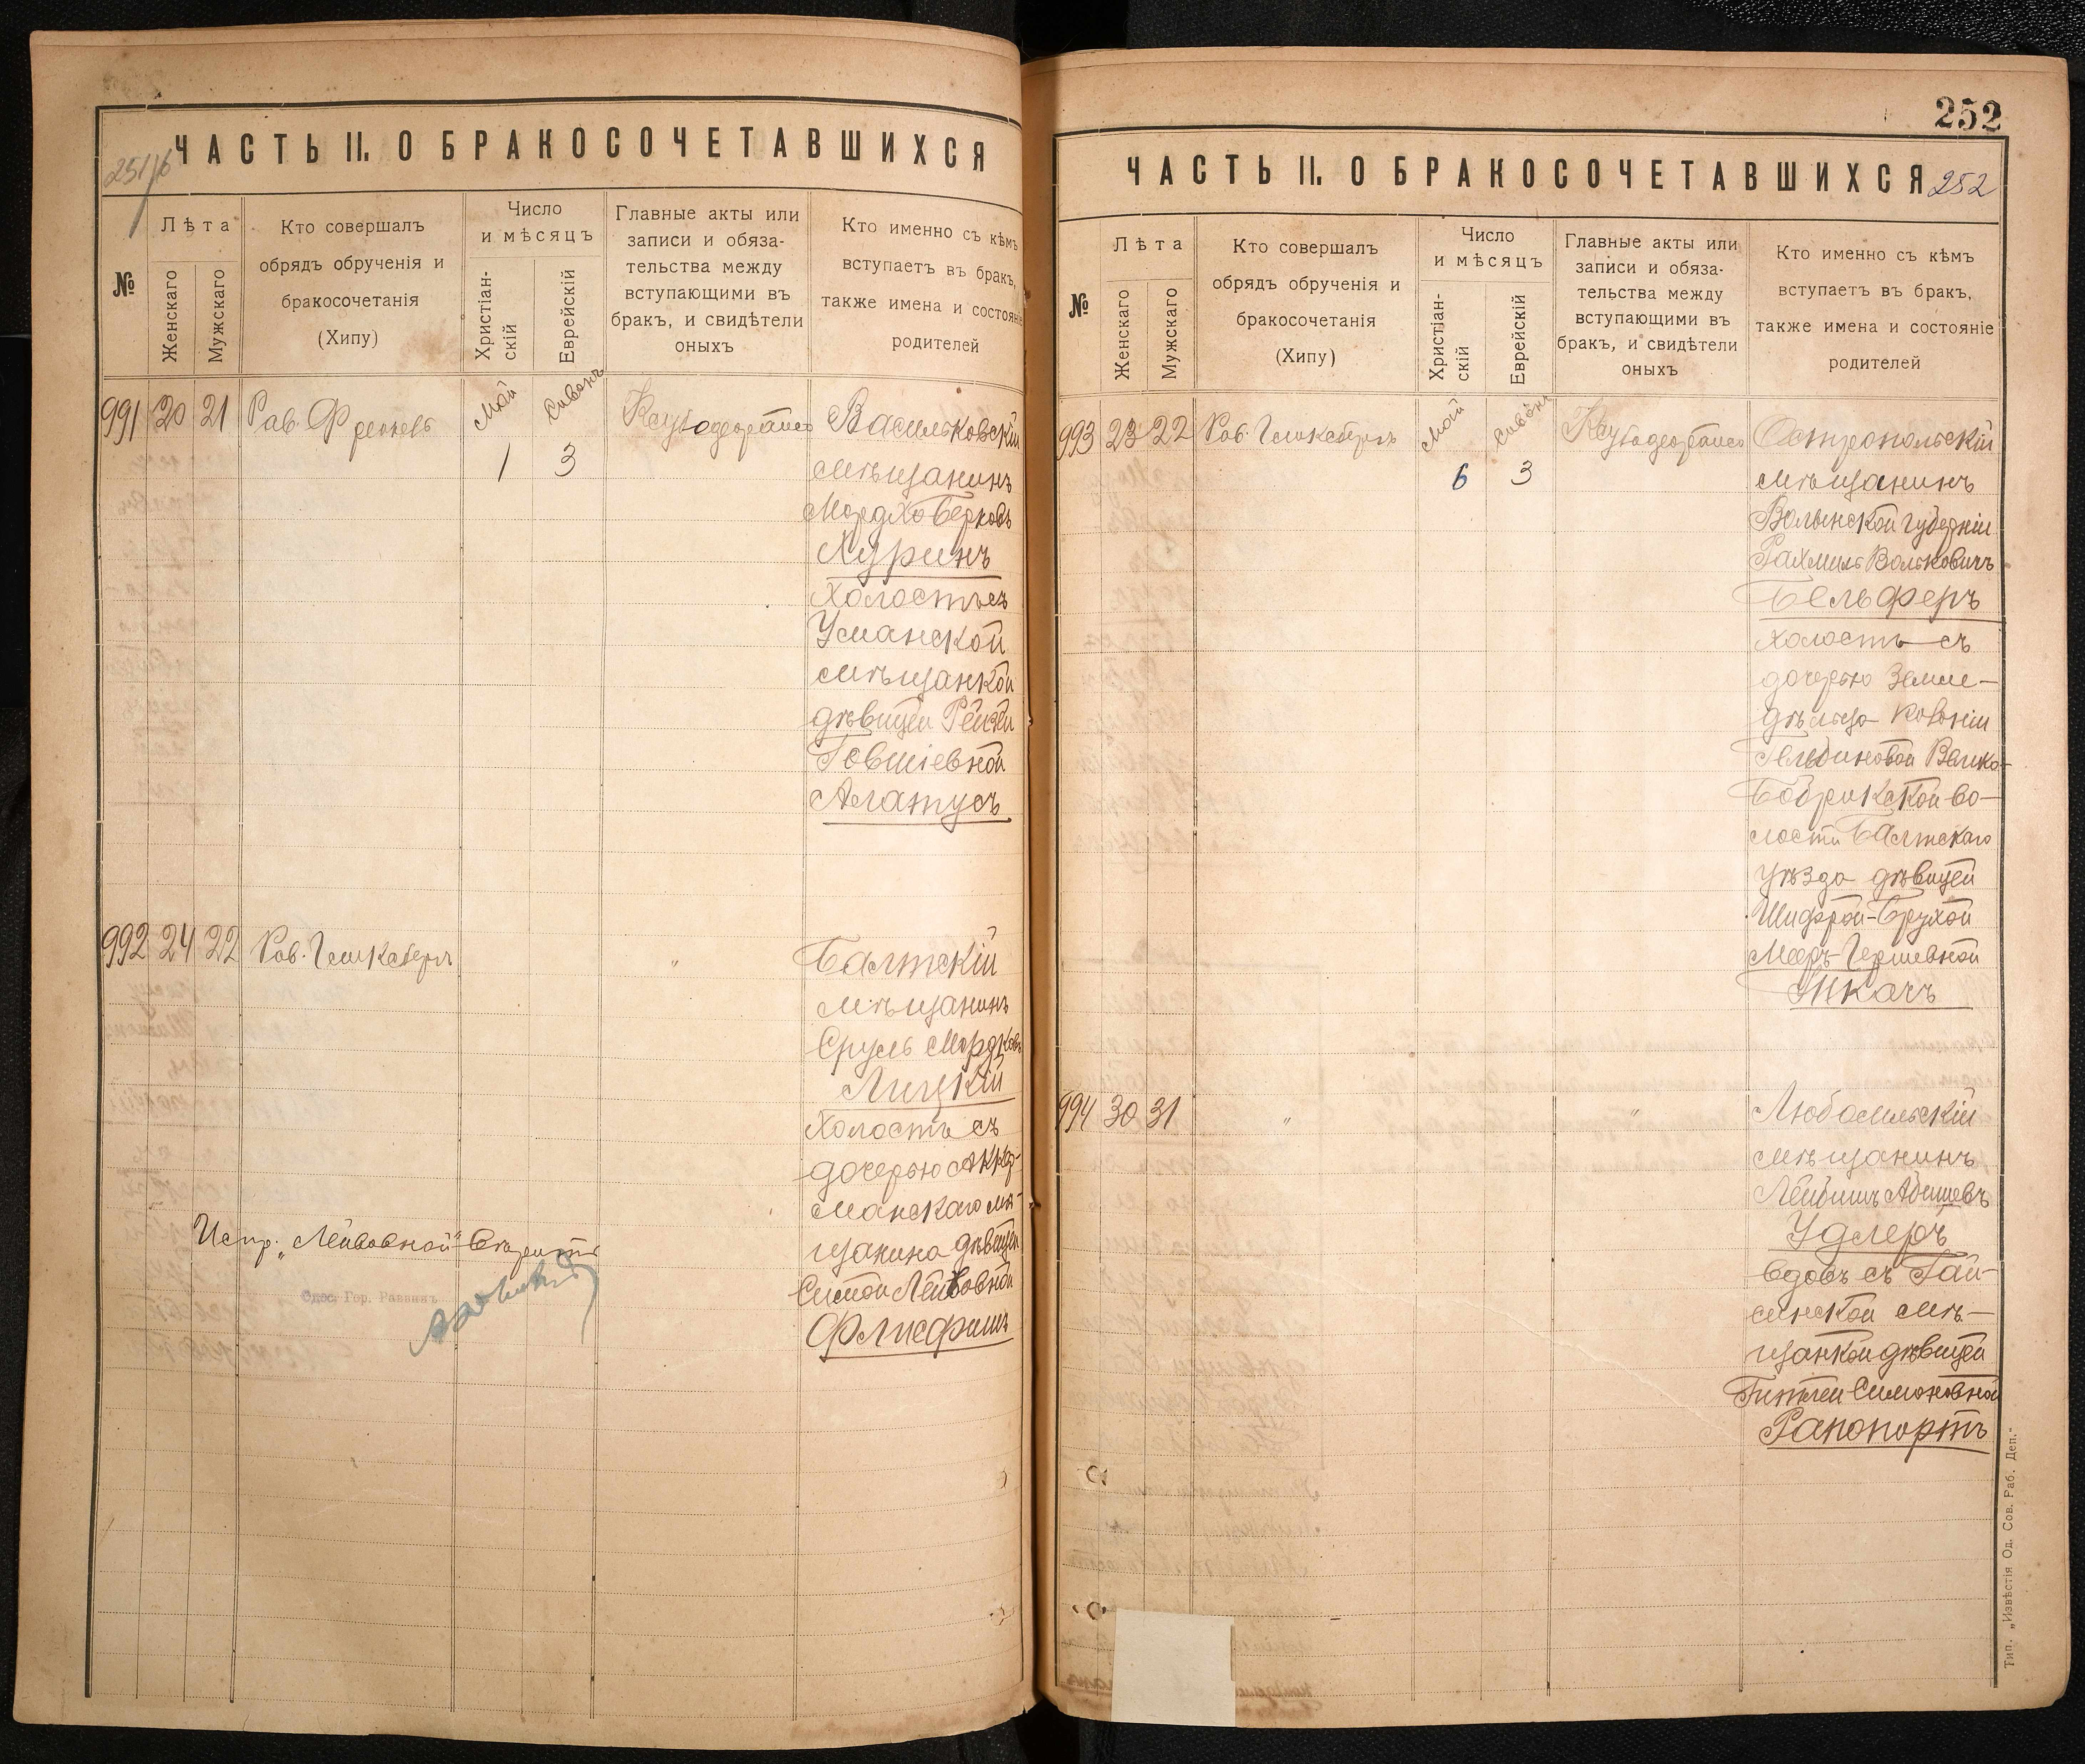 251/б
ЧАСТЬ II. О БРАКОСОЧЕТАВШИХСЯ
№
Лѣта
Женскаго
Мужскаго
Кто совершалъ
обрядъ обрученія и
бракосочетанія
(Хипу)
Число
и мѣсяцъ
Христіан-
скій
Еврейскій
Главные акты или
записи и обяза-
тельства между
вступающими въ
бракъ, и свидѣтели
оныхъ
Кто именно съ кѣмъ
вступаетъ въ бракъ,
также имена и состояніе
родителей
991 20 21 Рав. Френкель
Май Сивонъ
1 3
Васильковскій
мѣщанинъ
Мордхо Берковъ
Хуринъ
холостъ съ
Уманской
мѣщанкой
дѣвицей Рейзей
Іовшіевной
Алатусъ
992 24 22 Рав.
"
Балтскій
мѣщанинъ
Сруль Мордковъ
Лицкій
Холостъ съ
дочерью Аккер-
манскаго мѣ-
щанина дѣвицей
Симой Лейбовной
Флисфишъ
Испр. „Лейбовной" вѣрить
Одес. Гор. Раввинъ
252
ЧАСТЬ II. О БРАКОСОЧЕТАВШИХСЯ
252
№
Лѣта
Женскаго
Мужскаго
Кто совершалъ
обрядъ обрученія и
бракосочетанія
(Хипу)
Число
и мѣсяцъ
Христіан-
скій
Еврейскій
Главные акты или
записи и обяза-
тельства между
вступающими въ
бракъ, и свидѣтели
оныхъ
Кто именно съ кѣмъ
вступаетъ въ бракъ,
также имена и состояніе
родителей
993 23 22 Рав.
Май Сивонъ
6 3
Остропольскій
мѣщанинъ
Волынской губерніи
Рахмиль Вольковичъ
Бельферъ
холостъ съ
дочерью Земле-
дѣльца колоніи
Гельбиновой Велико-
Бобрикской во-
лости Балтскаго
уѣзда дѣвицей
Шифрой-Брухой
Мееръ-Гершевной
Ткачъ
994 30 31 " "
Любомльскій
мѣщанинъ
Лейбишъ Абишевъ
Удлеръ
вдовъ съ Гай-
синской мѣ-
щанкой дѣвицей
Гитлей Симоновной
Рапопортъ
Тип. „Извѣстія Од. Сов. Раб. Деп."